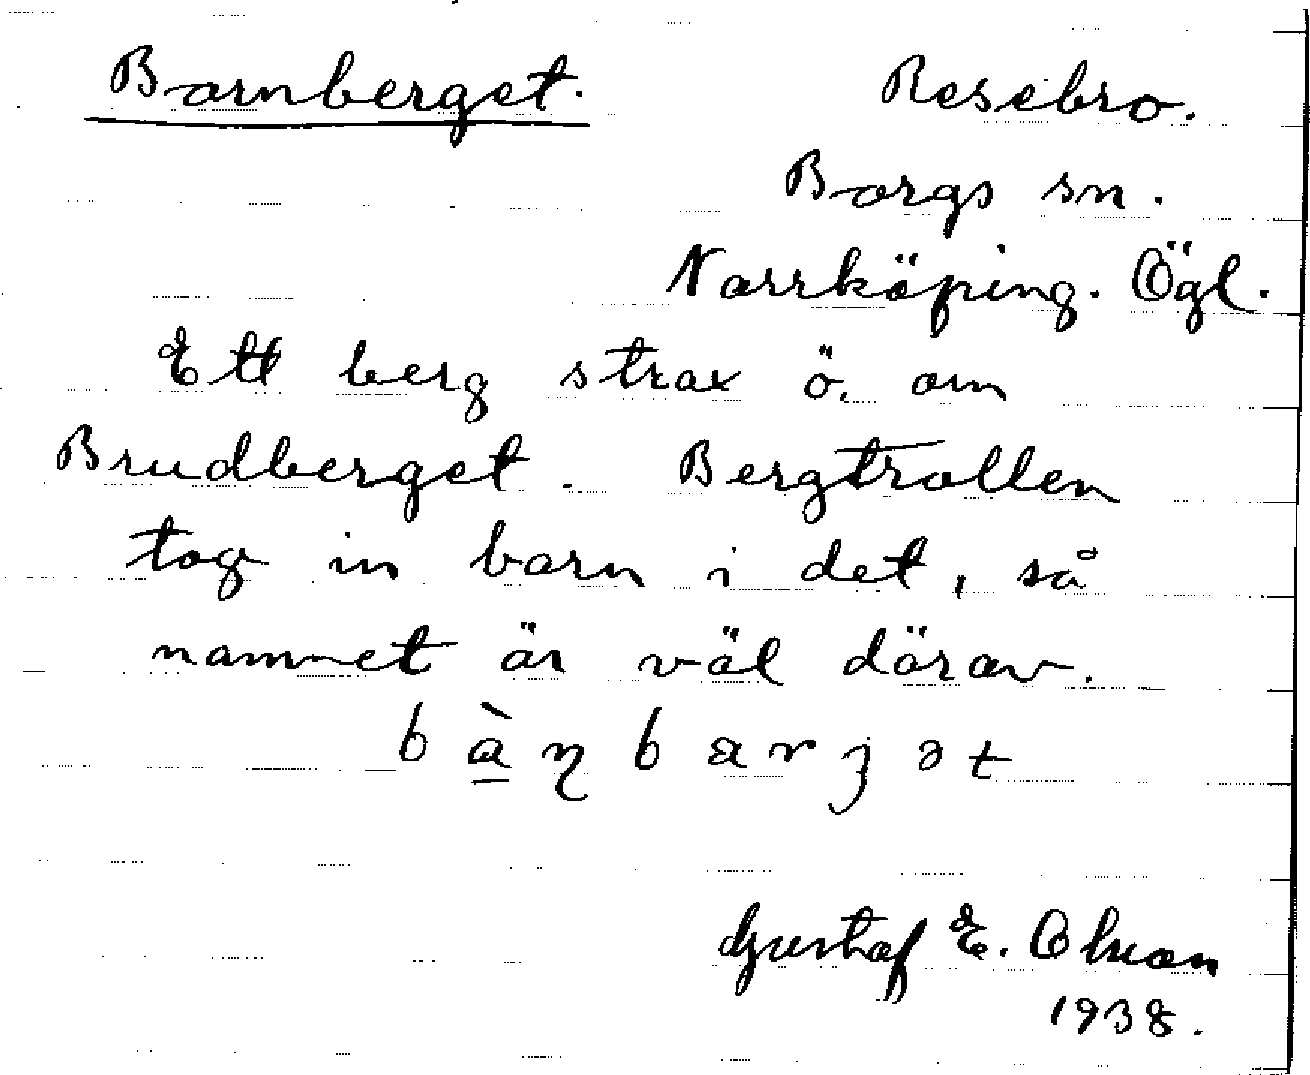 Barnberget. Resebro.
Borgs sn.
Norrköping. Ögl.
Ett berg strax ö. om
Brudberget. Bergtrollen
tog in barn i det, så
namnet är väl därav.
b à̱ɳbærjət
Gustaf E. Olsson
1938.